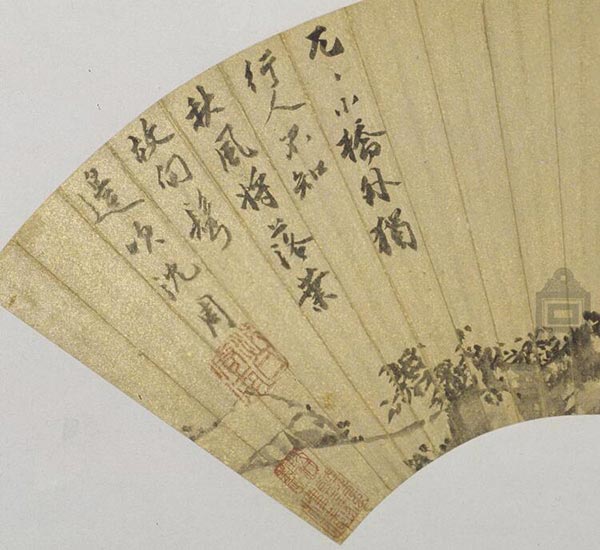 兀〻小橋外獨
行人不知
秋風將落葉
故向鬢
邊吹沈周